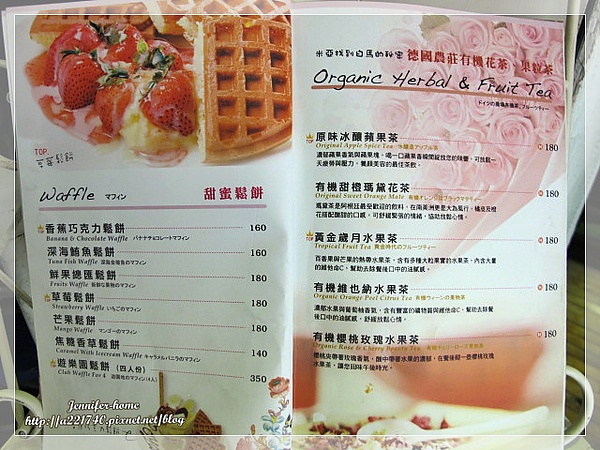 TOP
草莓鬆餅
Waffle マフィン 甜蜜鬆餅
香蕉巧克力鬆餅 160
Banana & Chocolate Waffle バナナチョコレートマフィン
深海鮪魚鬆餅 160
Tuna Fish Waffle 深海産鮪魚のマフィン
鮮果總匯鬆餅 180
Fruits Waffle 新鮮な果物のマフィン
草莓鬆餅 180
Strawberry Waffle いちごのマフィン
芒果鬆餅 180
Mango Waffle マンゴーのマフィン
焦糖香草鬆餅 140
Caramel With Icecream Waffle キャラメルバニラのマフィン
遊樂園鬆餅 (四人份) 350
Club Waffle For 4 遊園地のマフィン(4人)
Jennifer-home
http://a221740.pixnet.net/blog
米亞找到白馬的秘密 德國農莊有機花茶 果粒茶
Organic Herbal & Fruit Tea
ドイツの農場有機茶、フルーツティー
TOP 原味冰釀蘋果茶 180
Original Apple Spice Tea 氷醸造アップル茶
濃郁蘋果香氣與蘋果塊，喝一口蘋果香瞬間綻放您的味蕾，可放鬆一
天疲勞與壓力，養顏美容的最佳茶飲。
有機甜橙瑪黛花茶 180
Original Sweet Orange Mate
瑪黛茶是阿根廷最受歡迎的飲料，在南美洲更是大為風行，橘皮及橙
花搭配酸甜的口感，可舒緩緊張的情緒，協助找點心情。
TOP 黃金歲月水果茶 180
Tropical Fruit Tea 黄金時代のフルーツティー
百香果與芒果的熱帶水果茶，含有多種大粒果實的水果茶，內含大量
的維他命C，幫助去除餐後口中的油膩感。
有機維也納水果茶 180
Organic Orange Peel Citrus Tea 有機ウィーンの果物茶
濃郁水果與葡萄柚香氣，含有豐富的礦物質與維他命C，幫助去除餐
後口中的油膩感，舒緩放鬆心情。
有機櫻桃玫瑰水果茶 180
Organic Rose & Cherry Beauty Tea
櫻桃夾帶著玫瑰香氣，酸中帶著水果的濃郁，在餐後啜一些櫻桃玫瑰
水果茶，讓您回味午後時光。